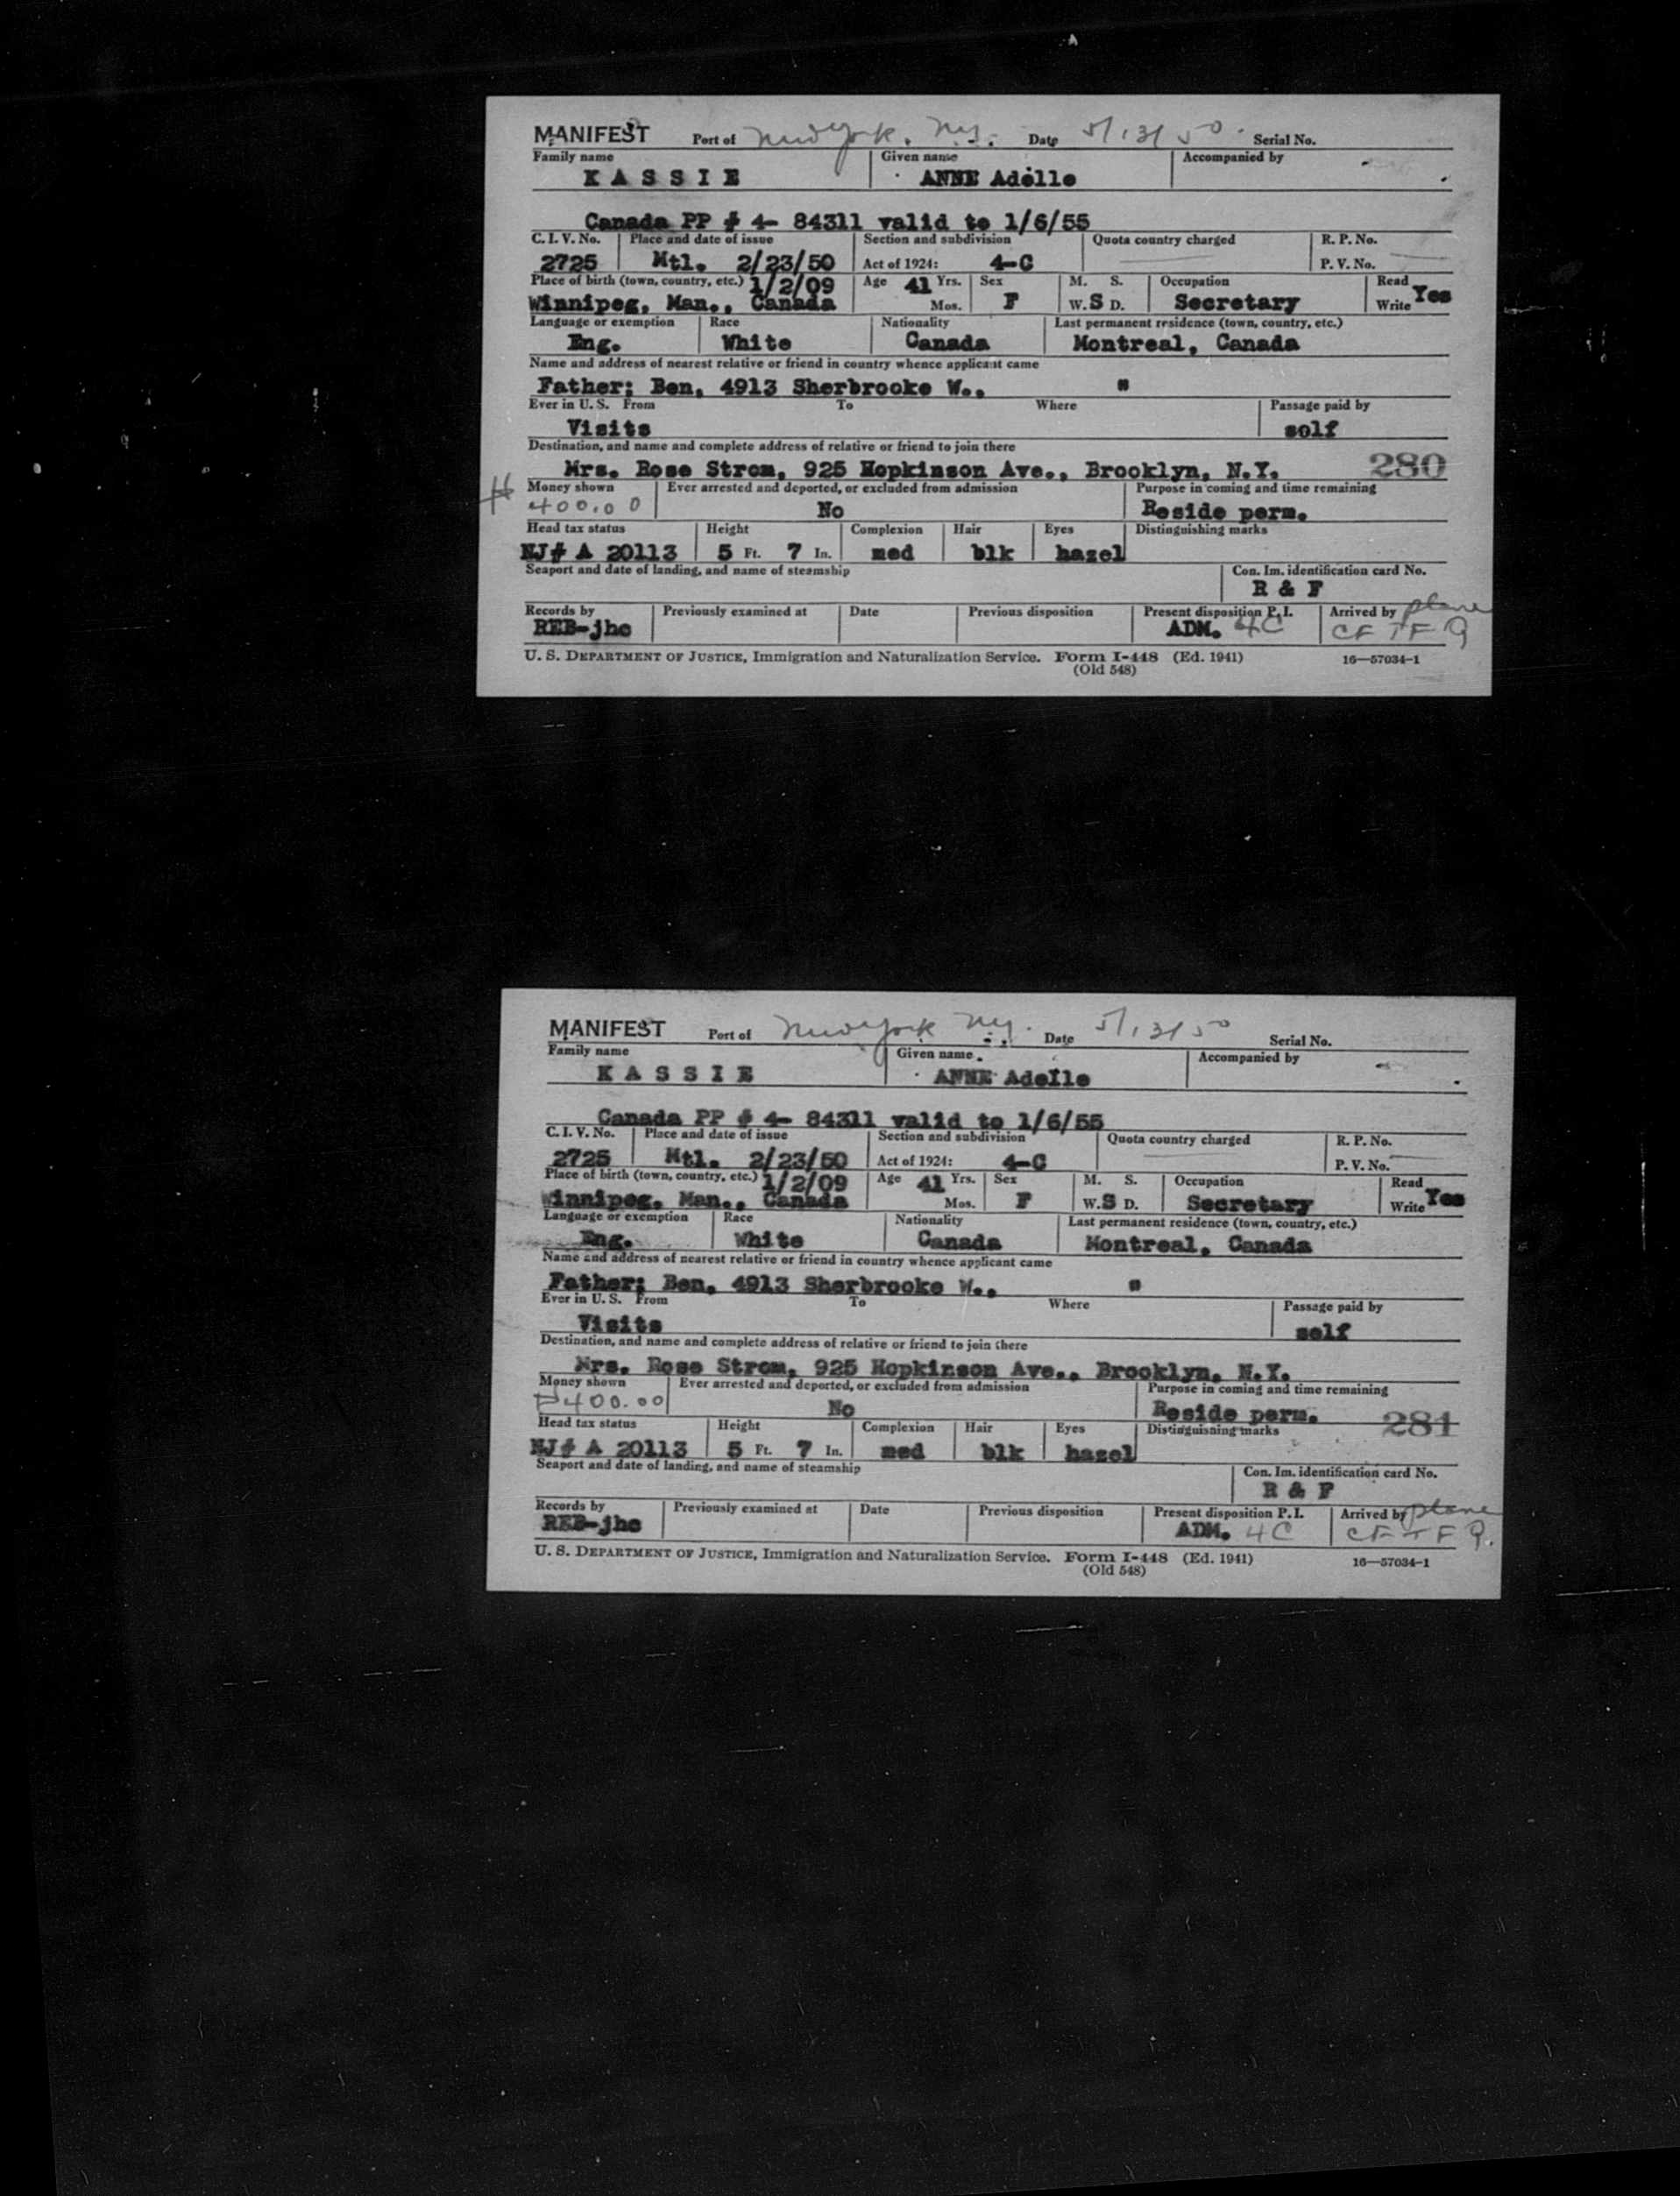 MANIFEST Port of New York, N.Y. Date 5/13/50 Serial No.
Family name Given name Accompanied by
KASSIE ANNE Adelle
Canada PP # 4- 84311 valid to 1/6/55
C. I. V. No. Place and date of issue Section and subdivision Quota country charged R. P. No.
2725 Mtl. 2/23/50 Act of 1924: 4-C P. V. No.
Place of birth (town, country, etc.) 1/2/09 Age 41 Yrs. Sex M. S. Occupation Read
Winnipeg, Man., Canada Mos. F W. S D. Secretary Write Yes
Language or exemption Race Nationality Last permanent residence (town, country, etc.)
Eng. White Canada Montreal, Canada
Name and address of nearest relative or friend in country whence applicant came
Father; Ben, 4913 Sherbrooke W., "
Ever in U. S. From To Where Passage paid by
Visits self
Destination, and name and complete address of relative or friend to join there
Mrs. Rose Strom, 925 Hopkinson Ave., Brooklyn, N.Y. 280
Money shown Ever arrested and deported, or excluded from admission Purpose in coming and time remaining
# 400.00 No Reside perm.
Head tax status Height Complexion Hair Eyes Distinguishing marks
NJ# A 20113 5 Ft. 7 In. med blk hazel
Seaport and date of landing, and name of steamship Con. Im. identification card No.
R & F
Records by Previously examined at Date Previous disposition Present disposition P. I. Arrived by plane
REB-jhc ADM. 4C CF TFQ
U. S. DEPARTMENT OF JUSTICE, Immigration and Naturalization Service. Form I-448 (Ed. 1941) 16—57034-1
(Old 548)
MANIFEST Port of New York N.Y. Date 5/13/50 Serial No.
Family name Given name Accompanied by
KASSIE ANNE Adelle
Canada PP # 4- 84311 valid to 1/6/55
C. I. V. No. Place and date of issue Section and subdivision Quota country charged R. P. No.
2725 Mtl. 2/23/50 Act of 1924: 4-C P. V. No.
Place of birth (town, country, etc.) 1/2/09 Age 41 Yrs. Sex M. S. Occupation Read
Winnipeg, Man., Canada Mos. F W. S D. Secretary Write Yes
Language or exemption Race Nationality Last permanent residence (town, country, etc.)
Eng. White Canada Montreal, Canada
Name and address of nearest relative or friend in country whence applicant came
Father; Ben, 4913 Sherbrooke W., "
Ever in U. S. From To Where Passage paid by
Visits self
Destination, and name and complete address of relative or friend to join there
Mrs. Rose Strom, 925 Hopkinson Ave., Brooklyn, N.Y.
Money shown Ever arrested and deported, or excluded from admission Purpose in coming and time remaining
400.00 No Reside perm. 281
Head tax status Height Complexion Hair Eyes Distinguishing marks
NJ# A 20113 5 Ft. 7 In. med blk hazel
Seaport and date of landing, and name of steamship Con. Im. identification card No.
R & F
Records by Previously examined at Date Previous disposition Present disposition P. I. Arrived by plane
REB-jhc ADM. 4C CF-TFQ.
U. S. DEPARTMENT OF JUSTICE, Immigration and Naturalization Service. Form I-448 (Ed. 1941) 16—57034-1
(Old 548)